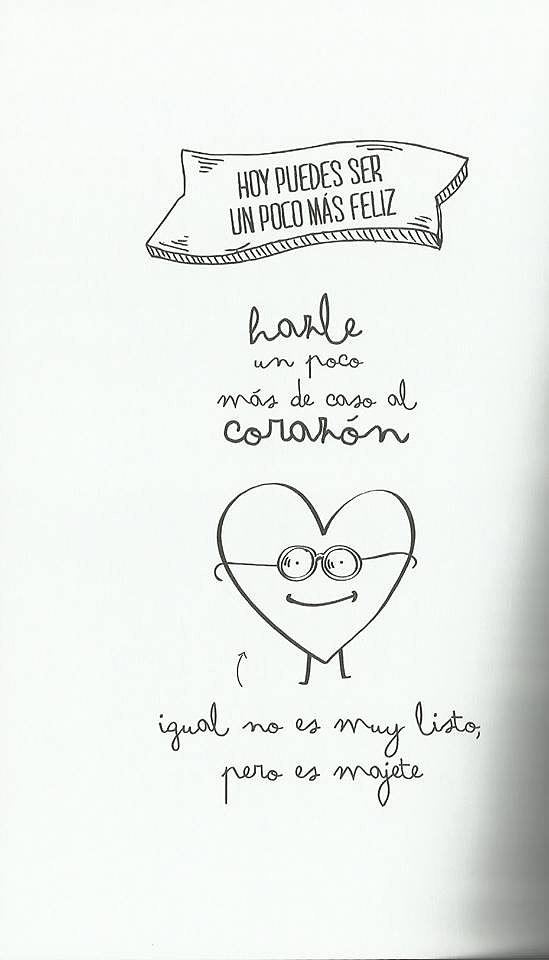 HOY PUEDES SER
UN POCO MÁS FELIZ
hazle
un poco
más de caso al
corazón
igual no es muy listo,
pero es majete